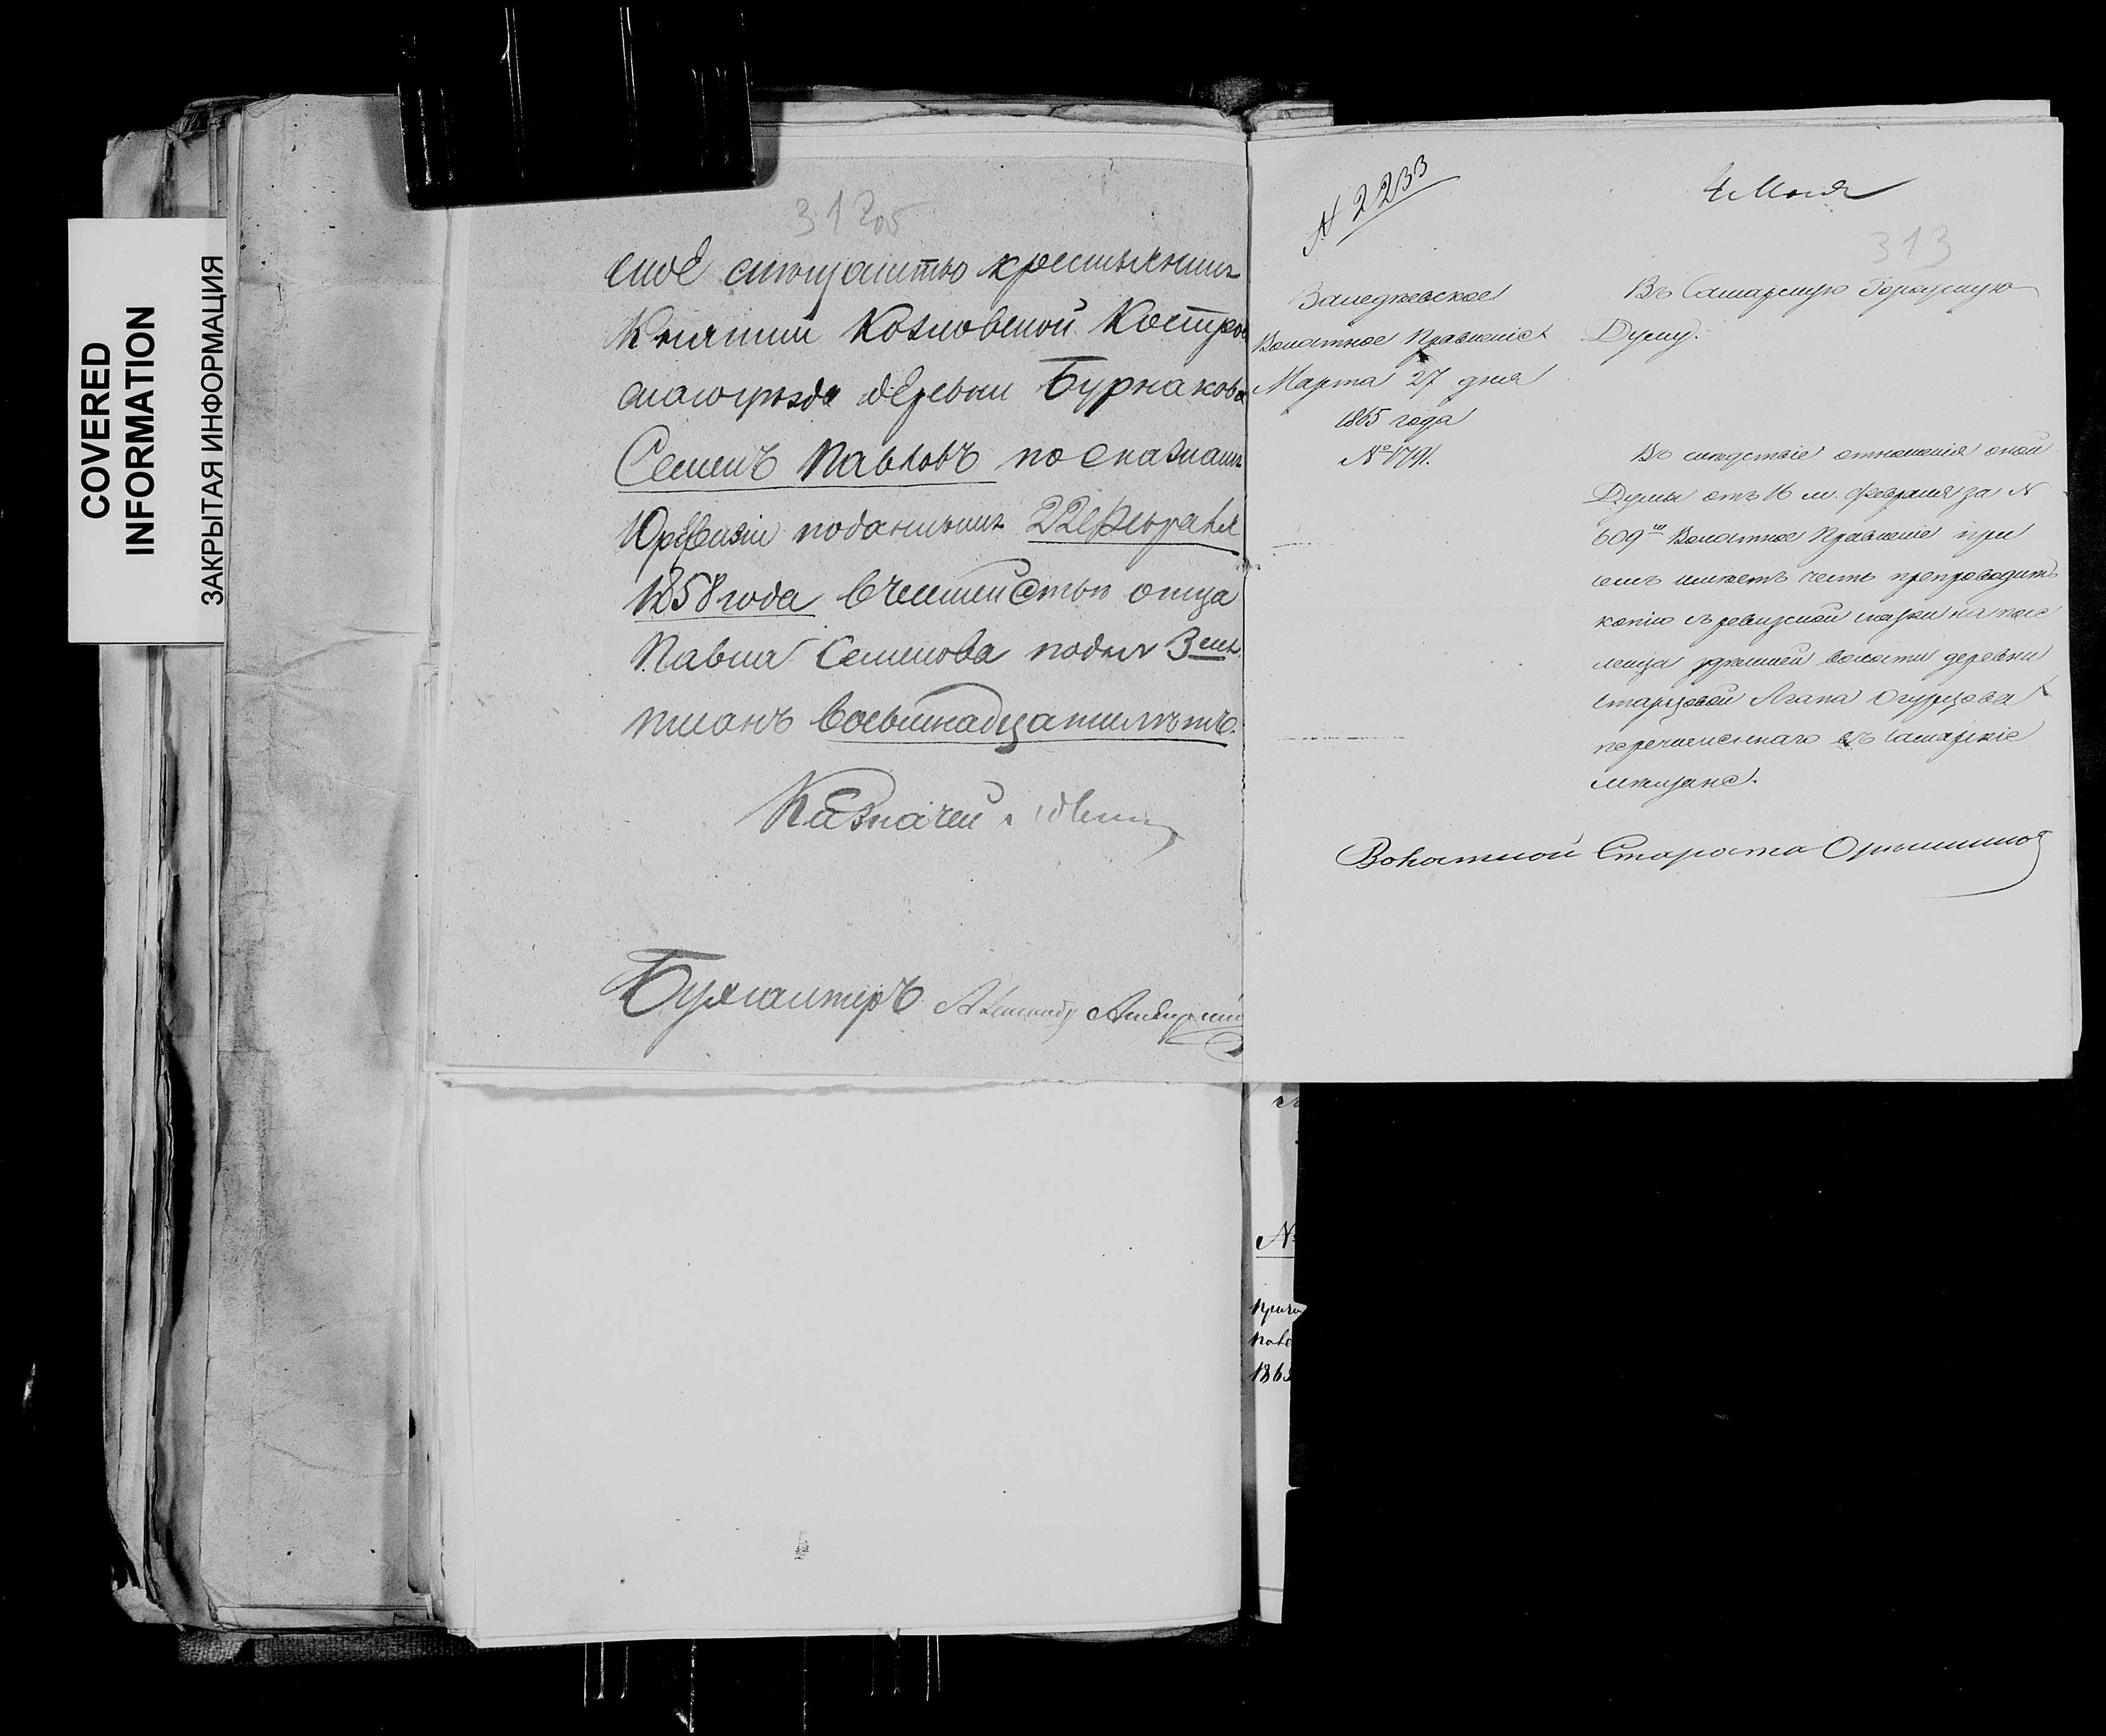 COVERED
INFORMATION
ЗАКРЫТАЯ ИНФОРМАЦИЯ
312 об
крестьянинъ
Княгини Козловской Костром
скаго уѣзда деревни Бурнакова
Семенъ Павловъ по сказкамъ
10 ревизіи поданнымъ 22 Февраля
1858 года въ семействѣ отца
Павла Семенова подъ № 3мъ
писанъ восьмнадцати лѣтъ.
Казначей
Бухгалтеръ
№ 2233
4 Мая
313
Заледѣевское
Волостное Правленіе
Марта 27 дня
1865 года
№ 1791.
Въ Самарскую Городскую
Думу.
Въ слѣдствіе отношенія оной
Думы отъ 16 м. Февраля за №
609мъ Волостное Правленіе при
семъ имѣетъ честь препроводить
копію съ ревизской сказки на посе
ленца здѣшней волости деревни
Старцовой Агапа Огурцова
перечисленнаго въ Самарскіе
мѣщане.
Волостной Староста
№
1865